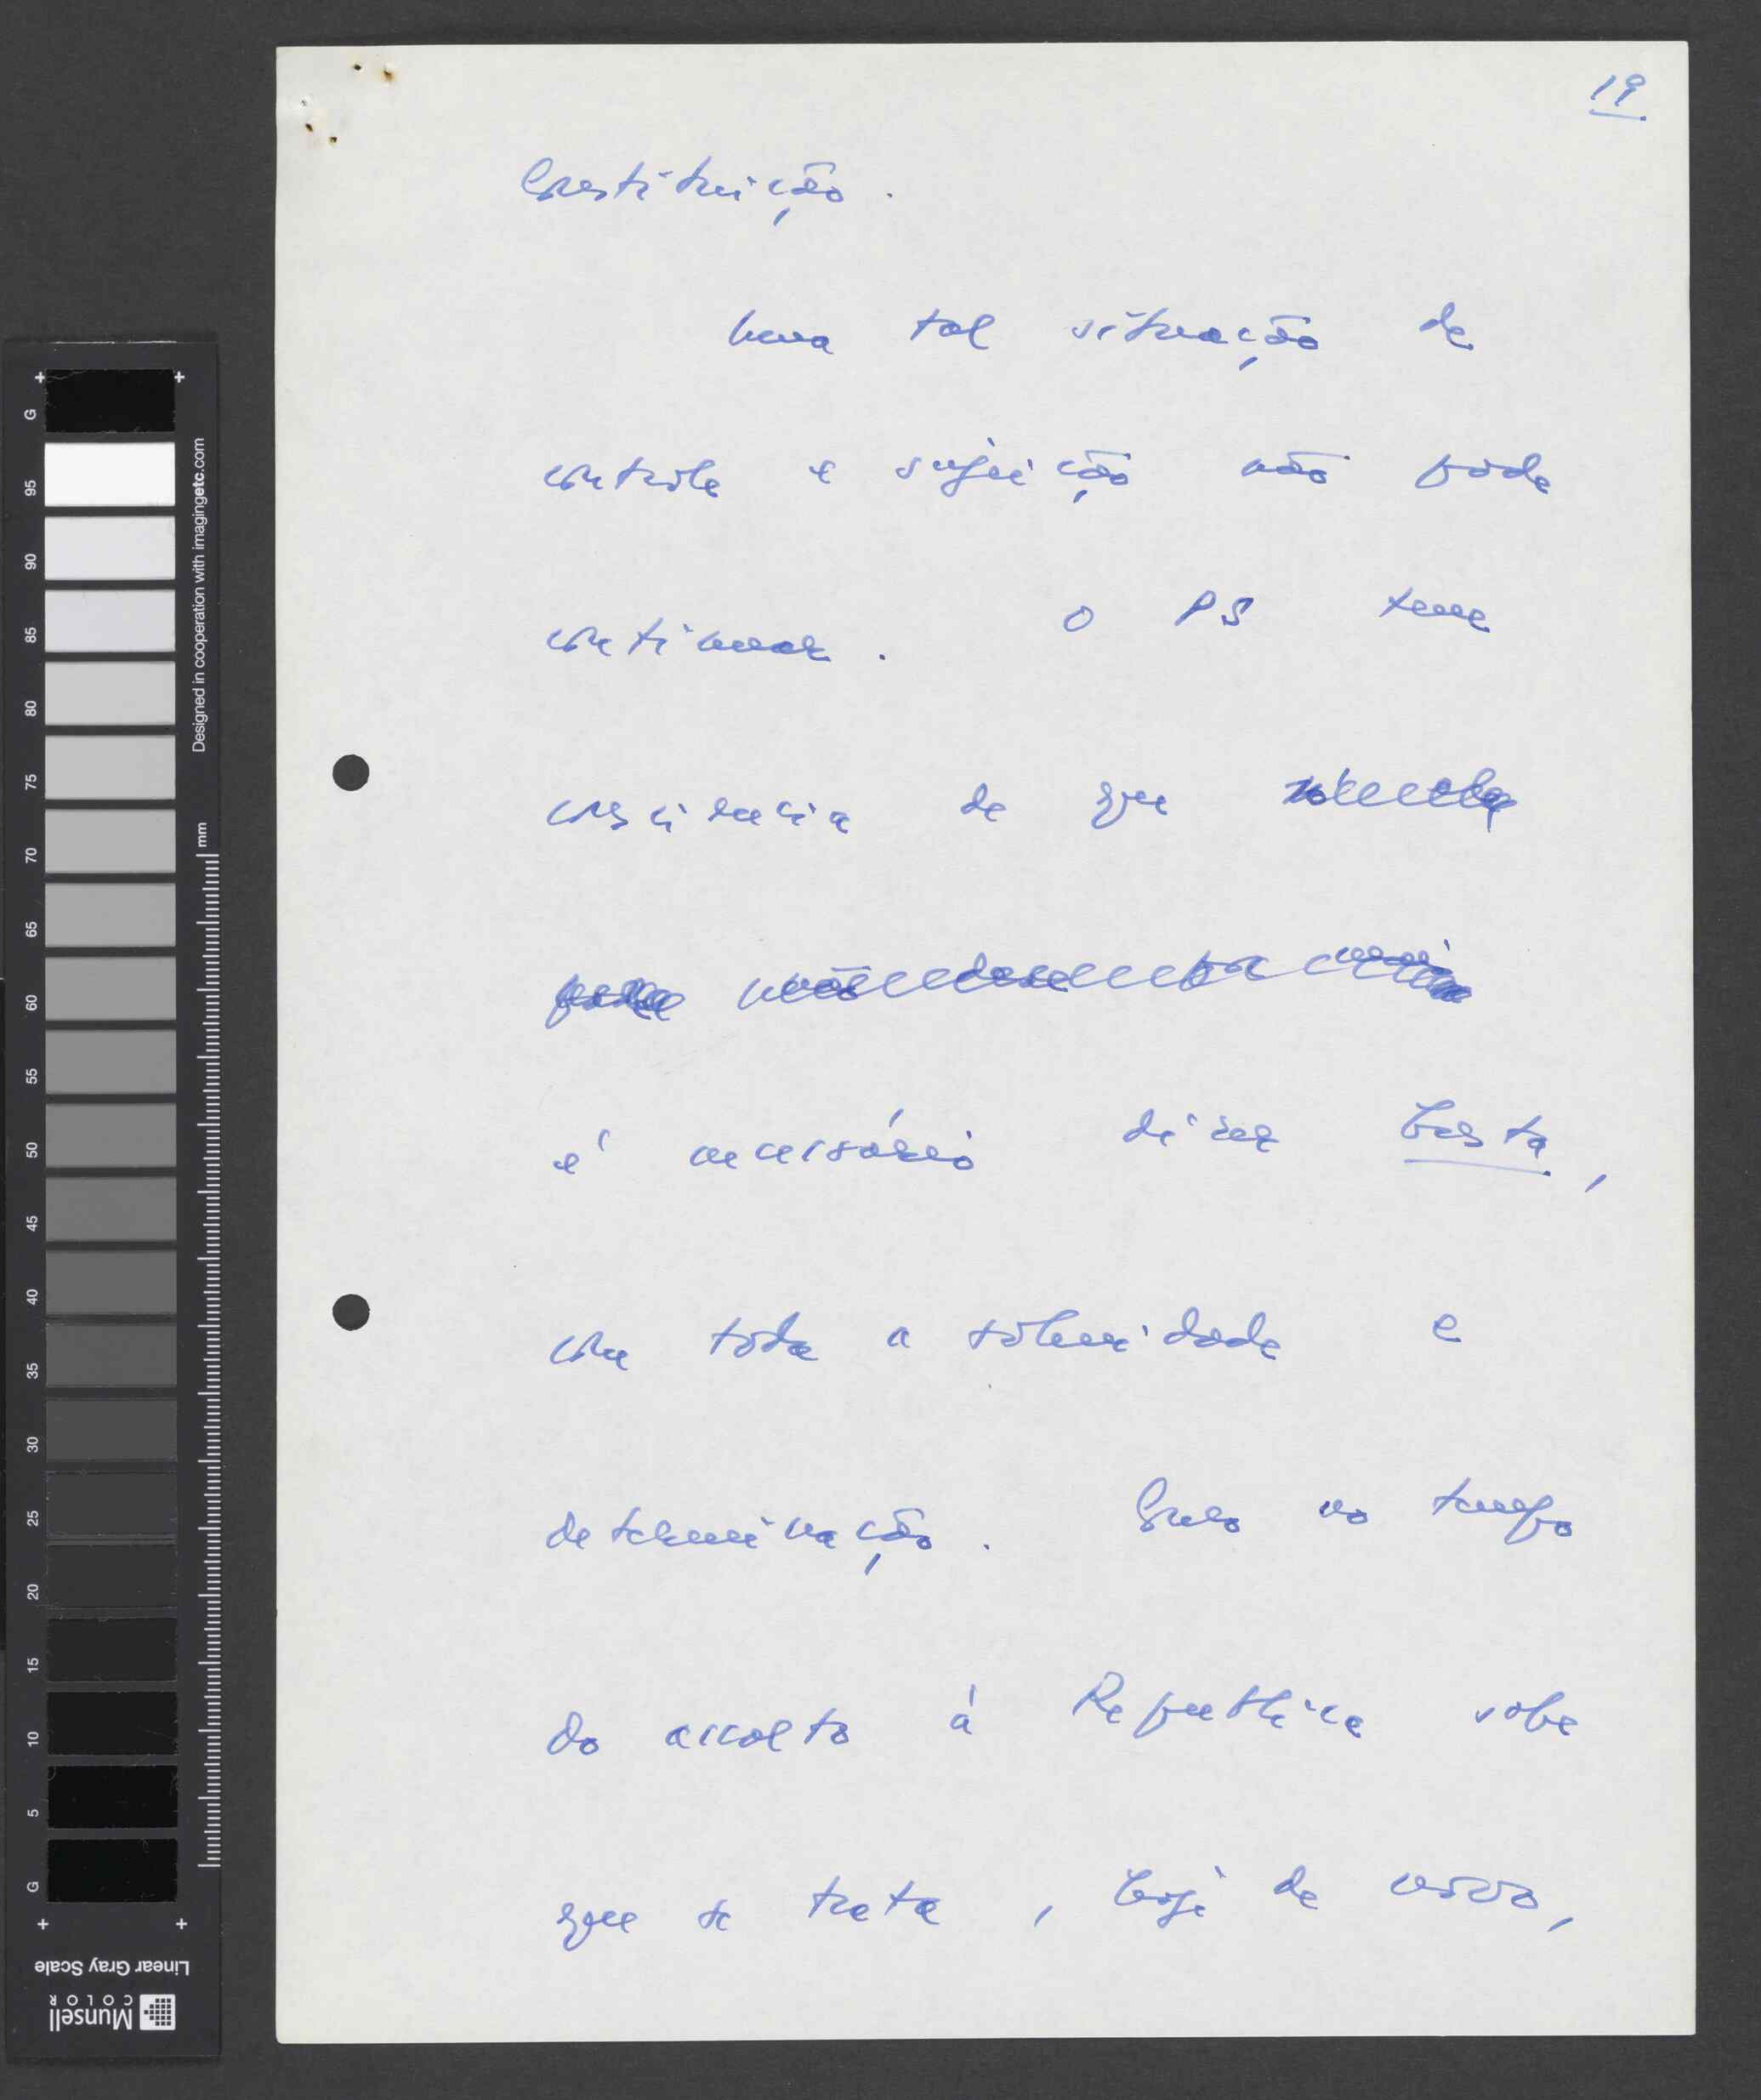 19
Constituição.
Uma tal situação de
controle e sujeição não pode
continuar. O PS tem
consciência de que
é necessário dizer basta,
com toda a solenidade e
determinação. Como no tempo
do assalto à República sobe
que se trata, hoje de novo,
G
95
90
85
80
75
70
65
60
55
50
45
40
35
30
25
20
15
10
5
G
Designed in cooperation with imagingetc.com
mm
Linear Gray Scale
Munsell
COLOR